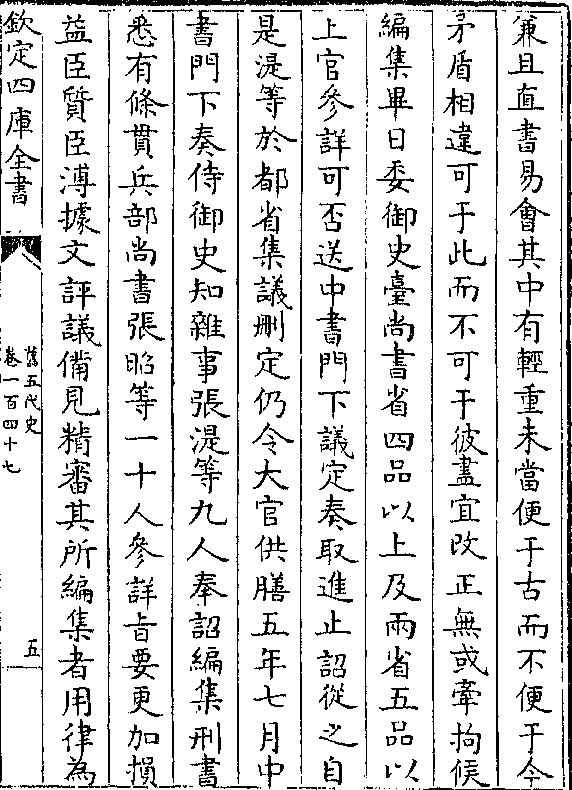 兼且直書易會其中有輕重未當便于古而不便于今
矛盾相違可于此而不可于彼盡宜改正無或牽拘候
編集畢日委御史臺尚書省四品以上及兩省五品以
上官參詳可否送中書門下議定奏取進止詔從之自
是湜等於都省集議刪定仍令大官供膳五年七月中
書門下奏侍御史知雜事張湜等九人奉詔編集刑書
悉有條貫兵部尚書張昭等一十人參詳旨要更加損
益臣質臣溥據文評議備見精審其所編集者用律為
欽定四庫全書
舊五代史
卷一百四十七
五